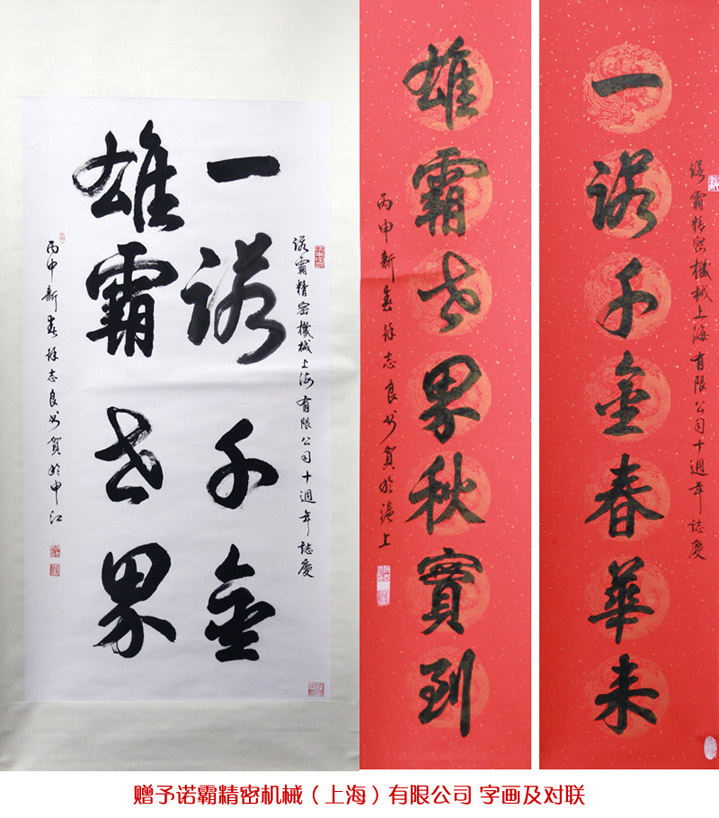 諾霸精密機械上海有限公司十週年誌慶
一諾千金
雄霸世界
丙申新春徐志良书賀於申江
諾霸精密機械上海有限公司十週年誌慶
一諾千金春華来
雄霸世界秋實到
丙申新春徐志良书賀於滬上
赠予诺霸精密机械（上海）有限公司 字画及对联